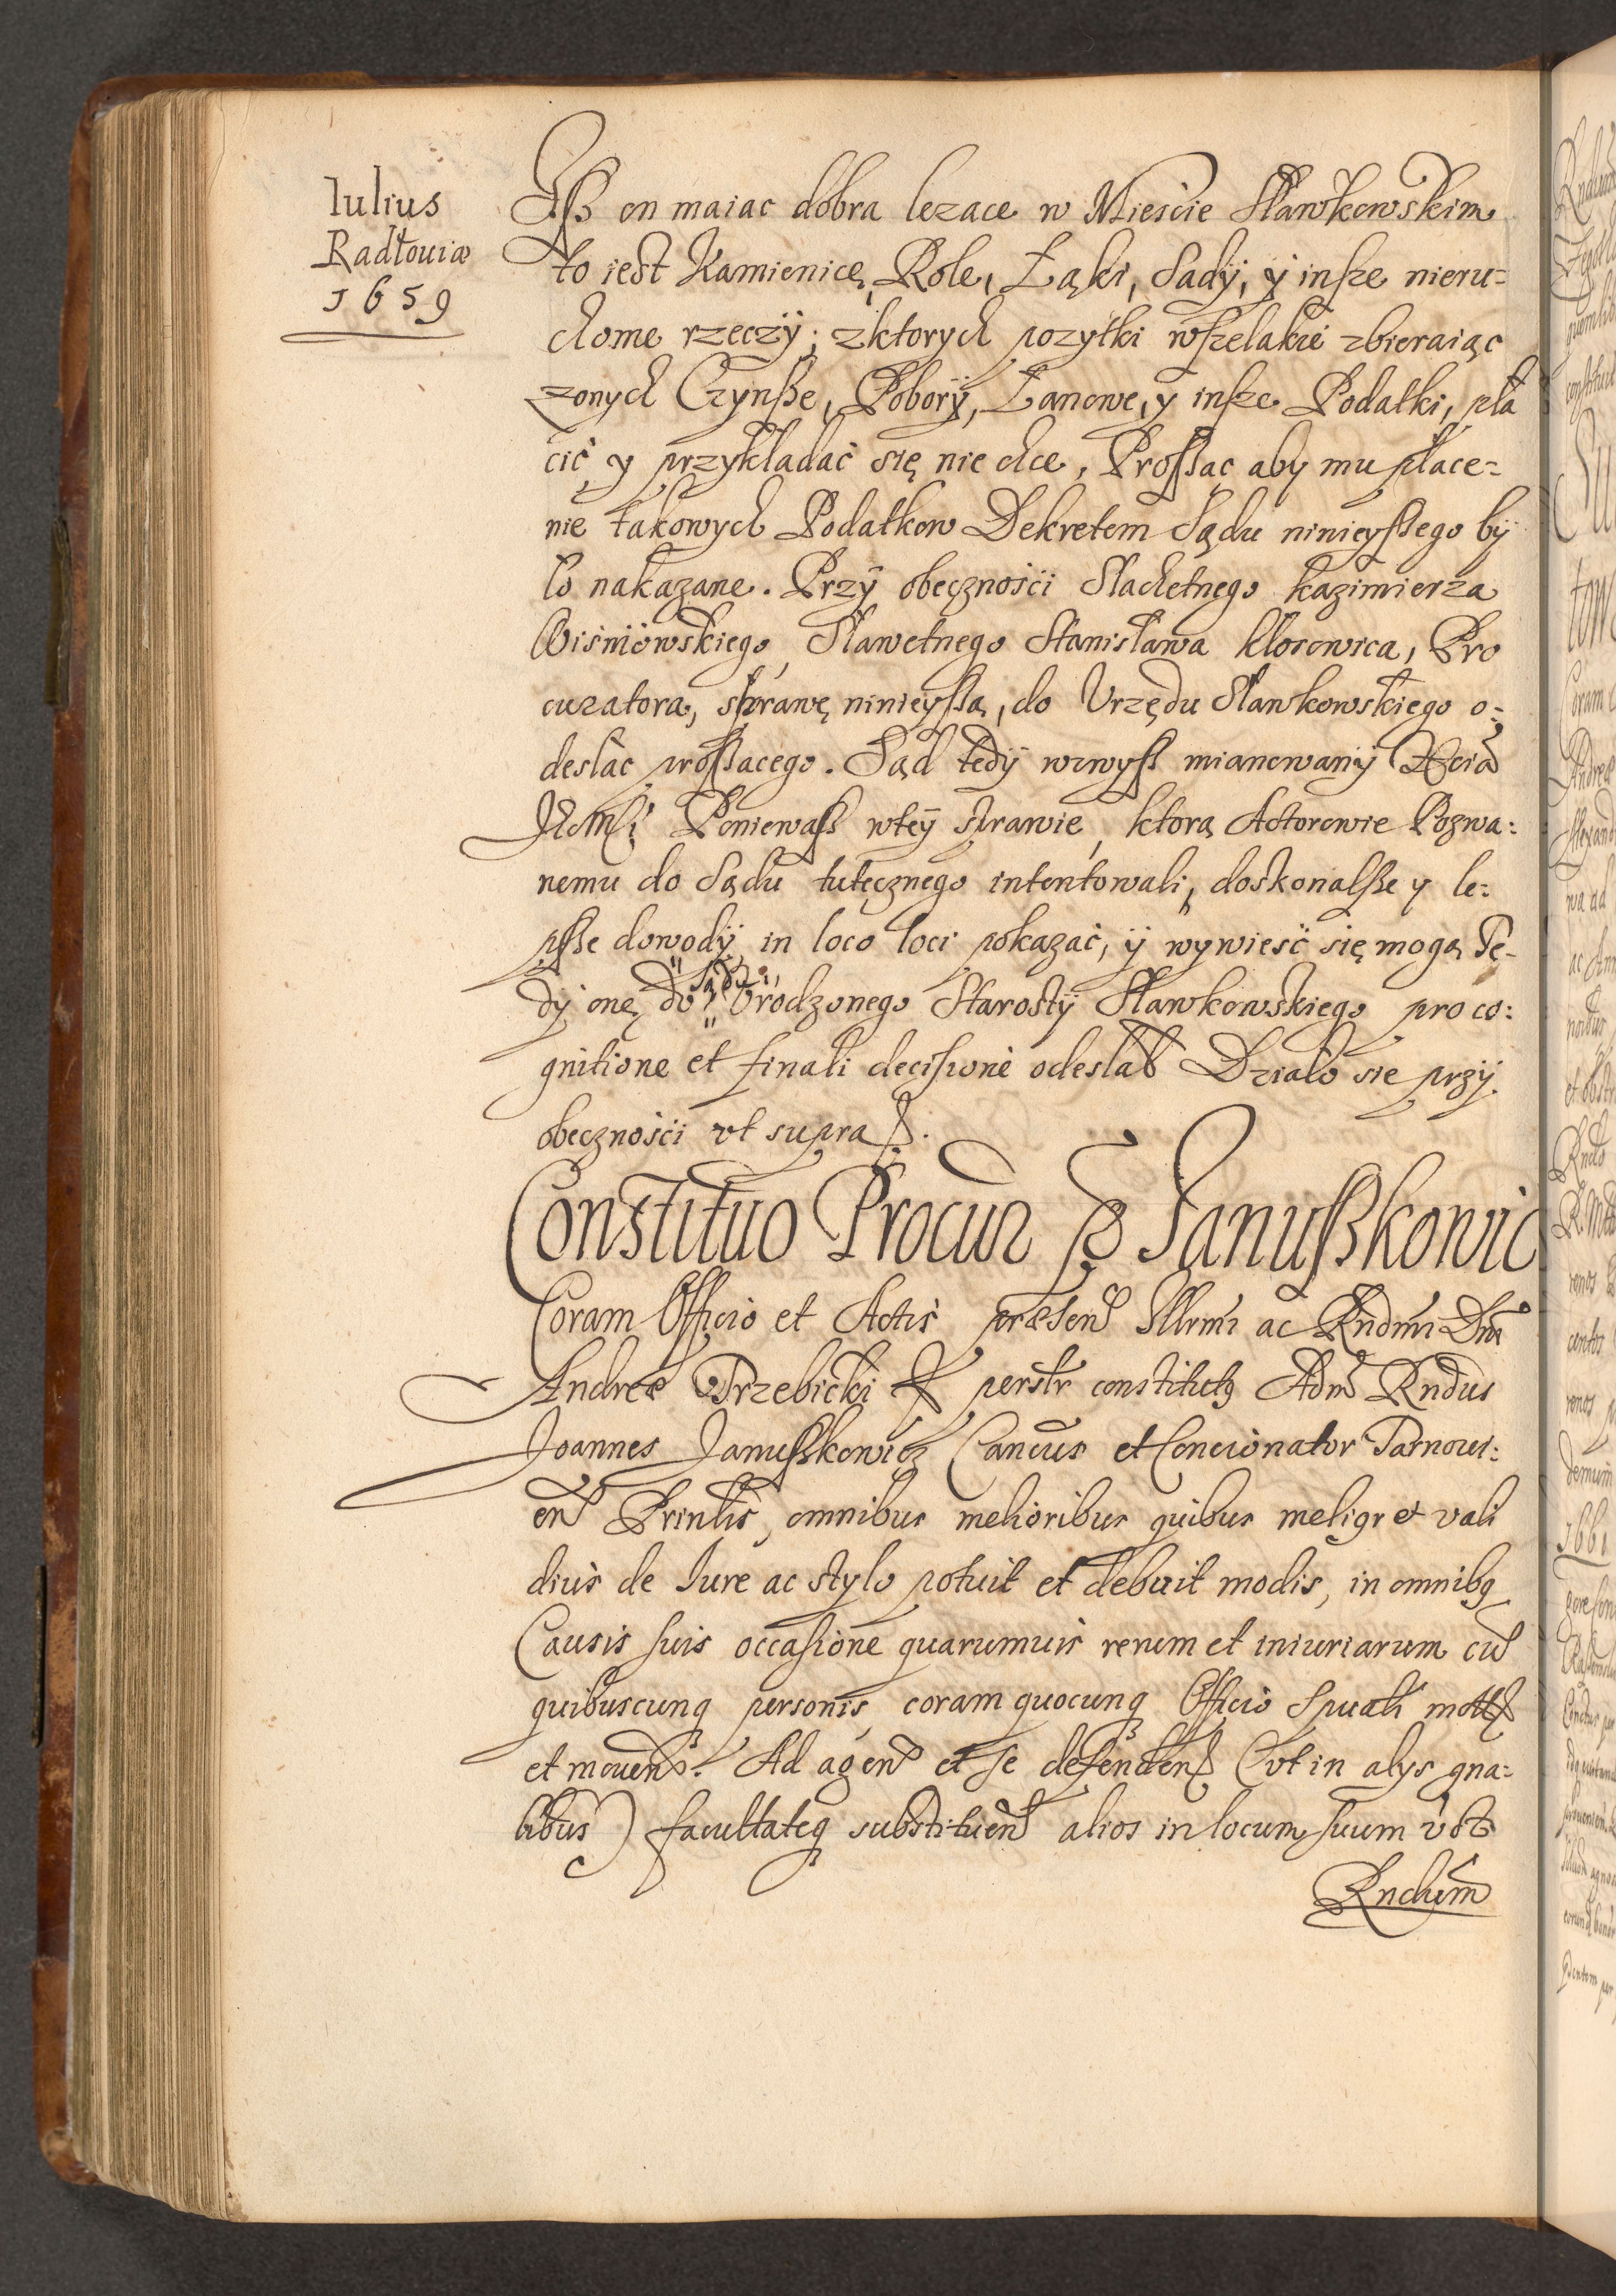 Iulius
Radłouiæ
1659
Iß on maiac dobra lezace w Mieście Sławkowskim
to iest Kamienicę, Role, Łąki, Sadÿ, ÿ insze nieru=
chome rzeczÿ; zktorych pozytki wszelakie zbieraiąc
zonych Czynsße, Poborÿ, Łanowe, y insze Podatki, pła
cić y przykladać się nie chce, Proßąc aby mu płace=
nie takowych Podatkow Dekretem Sądu ninieyßego bÿ
ło nakazane. Przÿ obecznośći Slachetnego Kazimierza
Wiśniowskiego, Sławetnego Stanisława Kłosowica, Pro
curatora, sprawę ninieyßą, do Vrzędu Slawkowskiego o=
desłac proßacego. Sąd tedÿ wzwyß mianowanÿ Xcia
Jeomści Poniewaß wteÿ sprawie, ktorą Actorowie Pozwa=
nemu do Sądu tutecznego intentowali, doskonalße y le=
pße dowodÿ in loco loci pokazać, ÿ wywieść się mogą Te=
dÿ onę do Sądu Vrodzonego Starostÿ Sławkowskiego pro co=
gnitione et finali decisione odesłał Działo sie przÿ
obecznośći vt supra
Constitutio Procur p Januszkowic
Coram Officio et Actis præsen Illrmi ac Rndmi Dni
Andreæ Trzebicki & persltr constitutq Adm Rndus
Joannes Janußkowicz Cancus et Concionator Tarnoui=
en Prinlis, omnibus melioribus quibus meligr et vali
dius de Iure ac stylo potuit et debuit modis, in omnibq
Causis suis occasione quarumuis rerum et iniuriarum cu
quibuscunq personis, coram quocunq Officio Spuali mot
et mouen. Ad agen et se defenden (vt in alys gna=
libus) facultateq substituen alios in locum suum vdt
Rndum